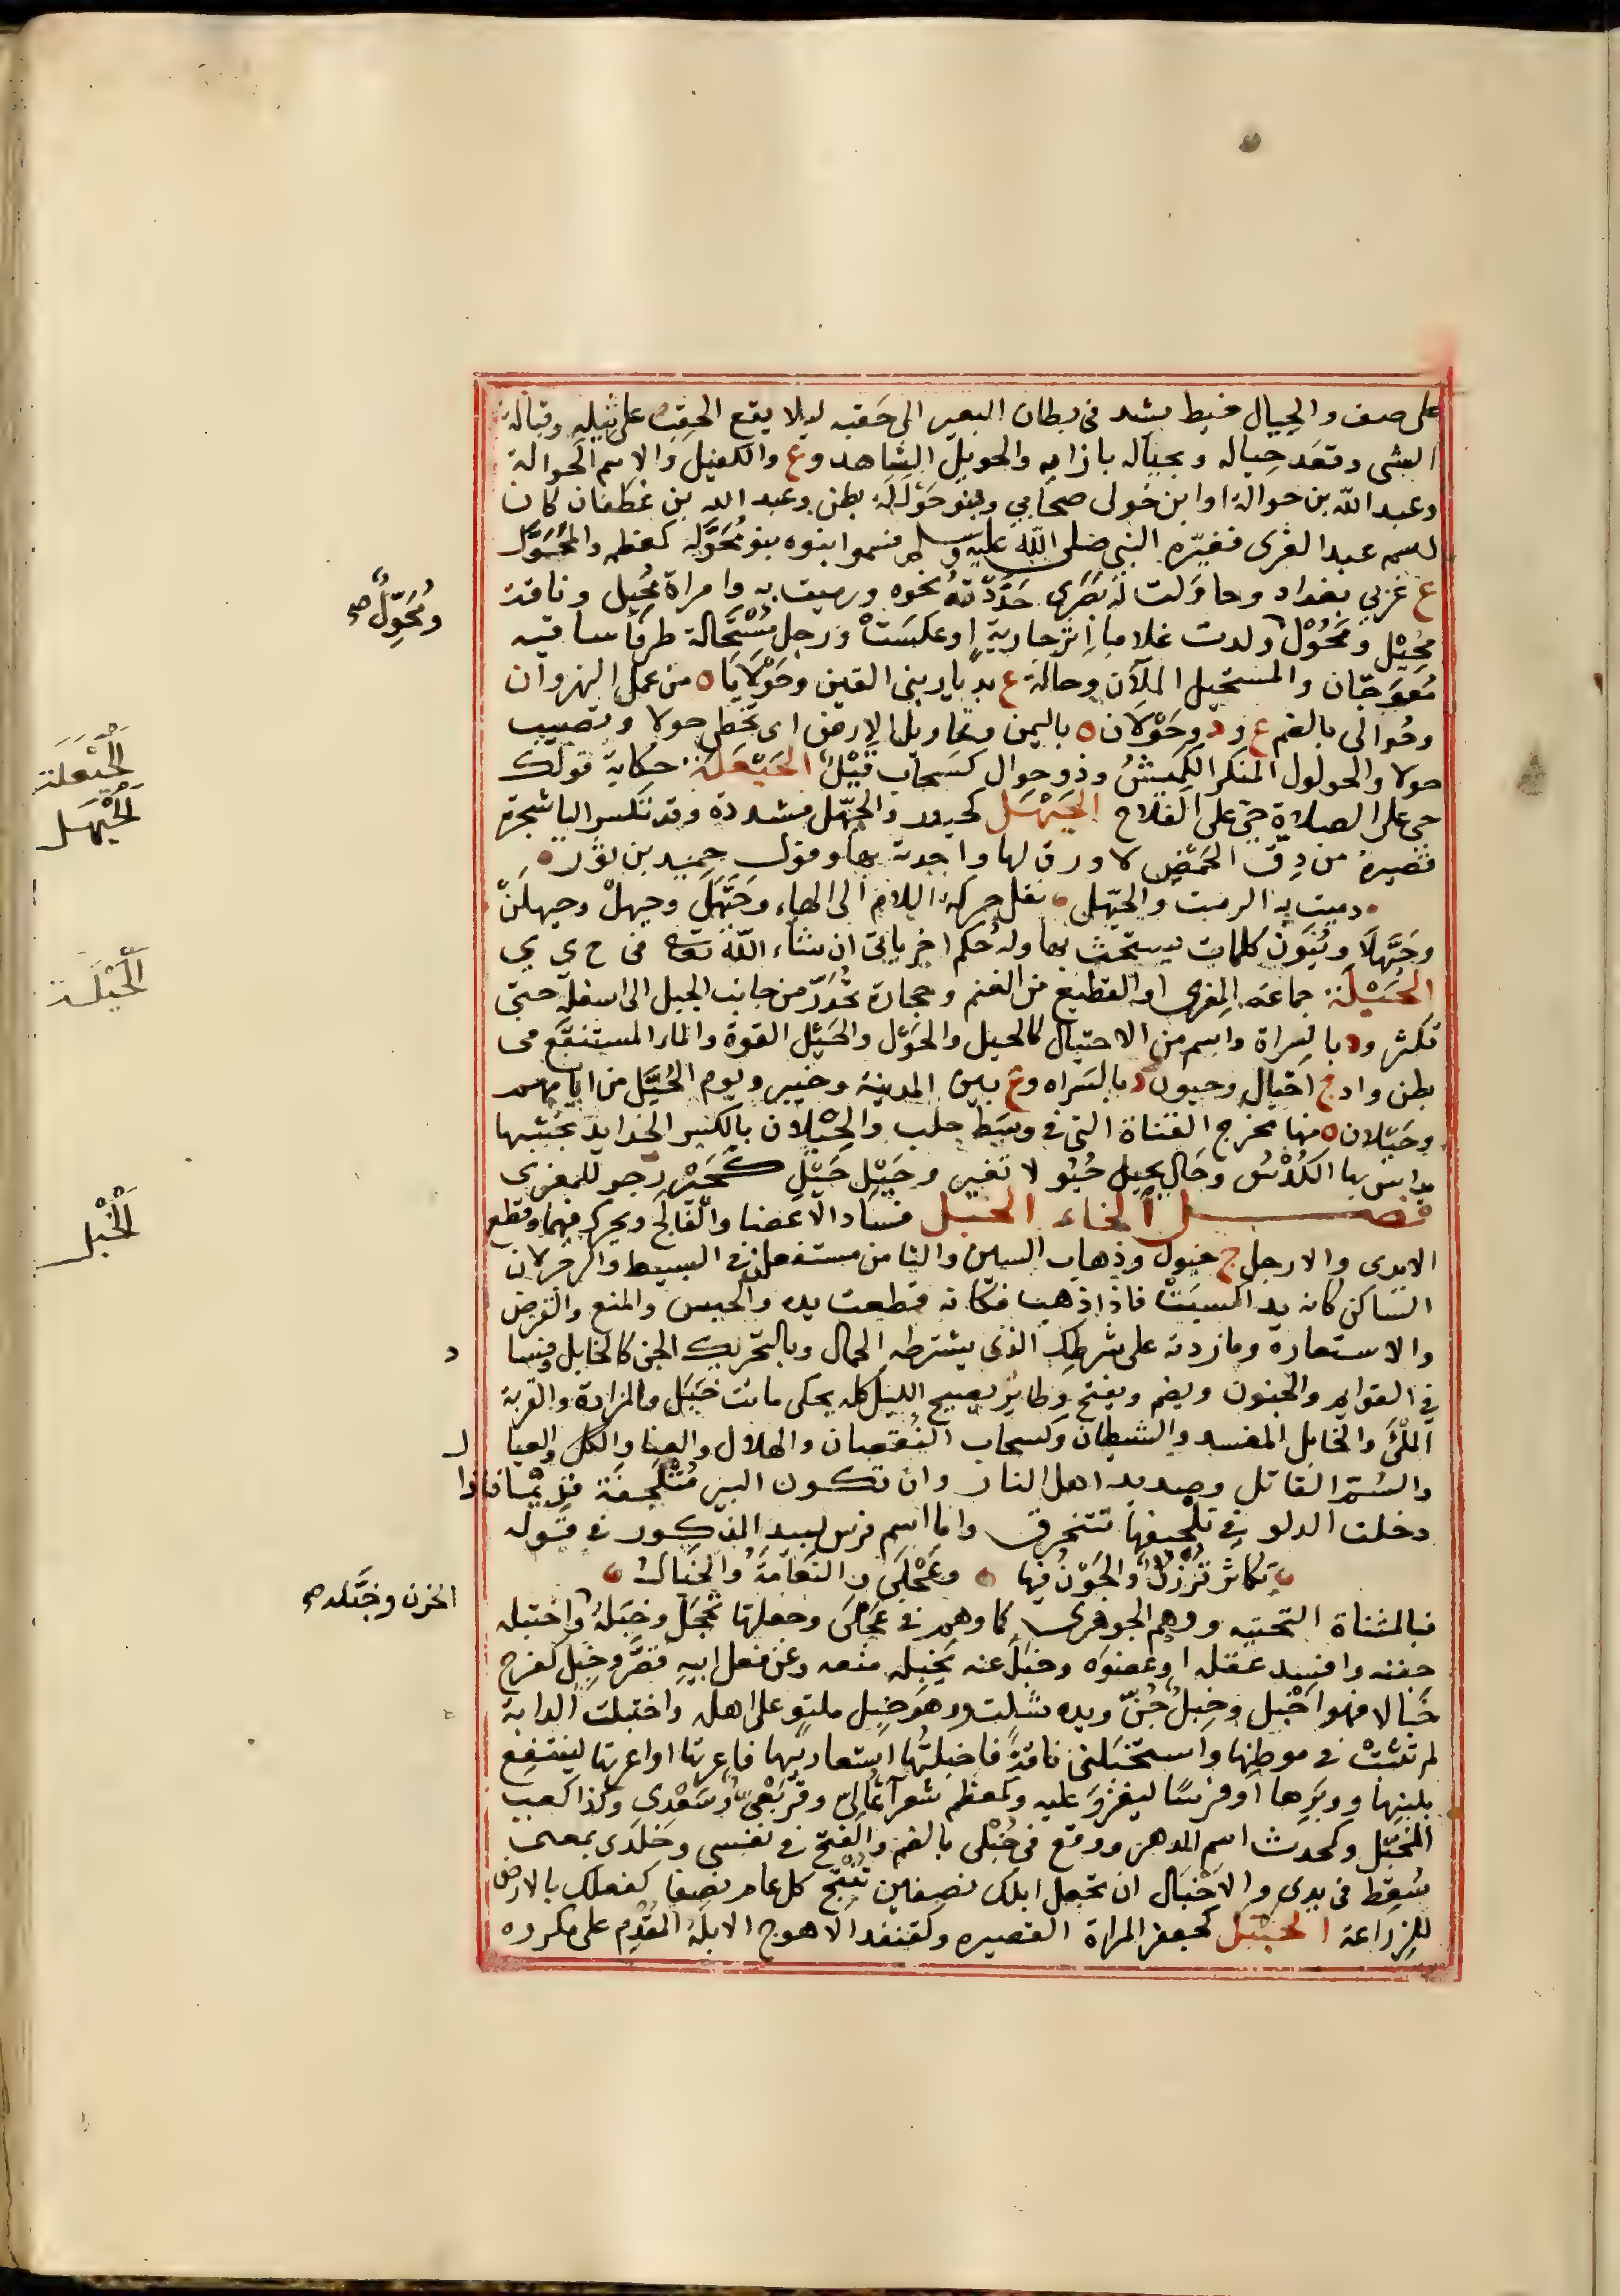 على صف والحِيال خيط يشد فى بطان البعير الى حَقَبه ليلا يقع الحقب على ثيله وقبالة
الشى وقعَد حِياله وبحياله بازايه والحويل الشاهد وع والكفيل والاسم الحوالة
وعبد الله بن حوالة او ابن حَولى صحابي وبنو حَوالة بطن وعبد الله بن غطفان كان
اسمه عبد العزى فغيّره النبي صلى الله عليه وسلم فسموا بنوه بنو مُحَوَّلة كمعظمه والمُحَوَّل
ع غربي بغداد وحاوَلت له بَصَرى حَدَّدته نحوه ورميت به وامراة مُحِيل وناقة
ومُحَوِّلٌ صح
مُحِيْل ومُحْوِل ولدت غلاما اِثر جارية او عكسَتْ ورجل مُسْتَحالة طرفا ساقيه
مُعَوجّان والمستحيل المَلآن وحالة ع بديار بنى القين وحَوْلايَا ه من عمل النهروان
وحُوالى بالضم ع ود وحَوْلان ه باليمن وتحاويل الارض اى تخطى حولا وتصيب
حولا والحولول المنكر الكَمِيشُ وذو حوال كسَحاب قَيْلٌ الحَيْعَلَة حكاية قولك
الحَيْعَلَة
حي على الصلاة حي على الفلاح الحَيْهَل كحيدر والحَيَّهل مشددة وقد تكسر اليا شجرة
الحَيْهَل
قصيرة من دِقّ الحَمْضِ لا ورق لها واحدته بهاء وقول حميد بن ثور
دميت به الرمث والحَيَّهل نقل حركة اللام الى الهاء وحَيَّهَلَ وحيهلْ وحيهلَنْ
وحَيَّهلَا ويُنَوّن كلمات يستحث بها وله حكم اخر ياتى ان شاء الله تعالى فى ح ى ي
الحَيْلَة جماعة المِعزى او القطيع من الغنم وحجارة تُحدَرّ من جانب الجبل الى اسفله حتى
الحَيْلَة
تكثر ود بالسراة واسم من الاحتيال كالحيل والحَوْل والحَيْل القوة والماء المستنقَع فى
بطن واد ج احيال وحيول ود بالسراه وع بين المدينة وخيبر ويوم الحُيَّل من ايامهم
وحَيْلان ه منها مخرج القناة التى في وسَط حلب والحِيْلان بالكسر الحدايد بخشبها
يداس بها الكُدْسُ وحَال يحيل حُيُو لا تغير وحَيْلِ حَيْلِ كَحَيْرِ زجر للمعزى
فصل الخاء الخبل فساد الاعضا والفالج ويحرك فيهما وقطع
الخَبْل
الايدى والارجل ج خبول وذهاب السين والثا من مستفعلن في البسيط والرجز لان
الساكن كانه يد السبَبْ فاذا ذهب فكانه قطعت يده والحبس والمنع والقرض
والاستعارة وما زدته على شرطِك الذى يشترطه الجمال وبالتحريك الجن كالخابل وفسا د
في القوايم والجنون ويضم ويفتح وطاير يصيح الليل كله يحكى ماتت خَبَل والمزادة والقربة
المَلْئَ والخابل المفسد والشيطان وكسحاب النقصان والهلاك والعنا والكل والعيا ل
والسُمّ القاتل وصديد اهل النار وان تكون البير مُتَلَجِّفة فرُبما فاذا
دخلت الدلو فى تَلْجيفها تتخرق واما اسم فرس لبيد المذكور فى قوله
تكاثر قُرْزُلٌ والجَوْنُ فيها وعَجْلَى والنَعَامَةُ والخَبَالُ
فبالمثناة التحتيه ووهم الجوهرى كما وهم في عَجْلَى وجعلها تَحْجَل وخَبَلهُ واختبله
الحزن وخَبَّله صح
جننه وافسد عقله او عضوَه وخبَلَ عنه يخبِله منعه وعن فعل ابيه قصَّر وخَبِل كفرح
خَبالا فهو اخْبل وخَبِلٌ جُنّ ويده شلّت وهو خبِل ملتو على اهله واختبلت الدابة
لم تثبُتْ في موطنِها واستخبَلنى ناقةً فاخبلتُها استعارنيها فاعرتها او اعرتها لينتفِع
بلبنِها ووبَرِها او فرسًا ليغزوَ عليه وكمعظم شعرآ ثمالىٌ وقُرَيْعىٌ وسَعْدى وكذا كعب
المخبَّل وكمحدث اسم للدهر ووقع فى خُبْلى بالضم والفتح فى نفسى وخلَدى بمعنى
سُقِط فى يدى والاخبال ان تجعل ابلك نصفين تُنتِج كل عام نصفا كفعلك بالارض
للزراعة الخَبْتَل كجعفر المراة القصيره وكقنفد الاهوج الابله المقدِم على مكروه